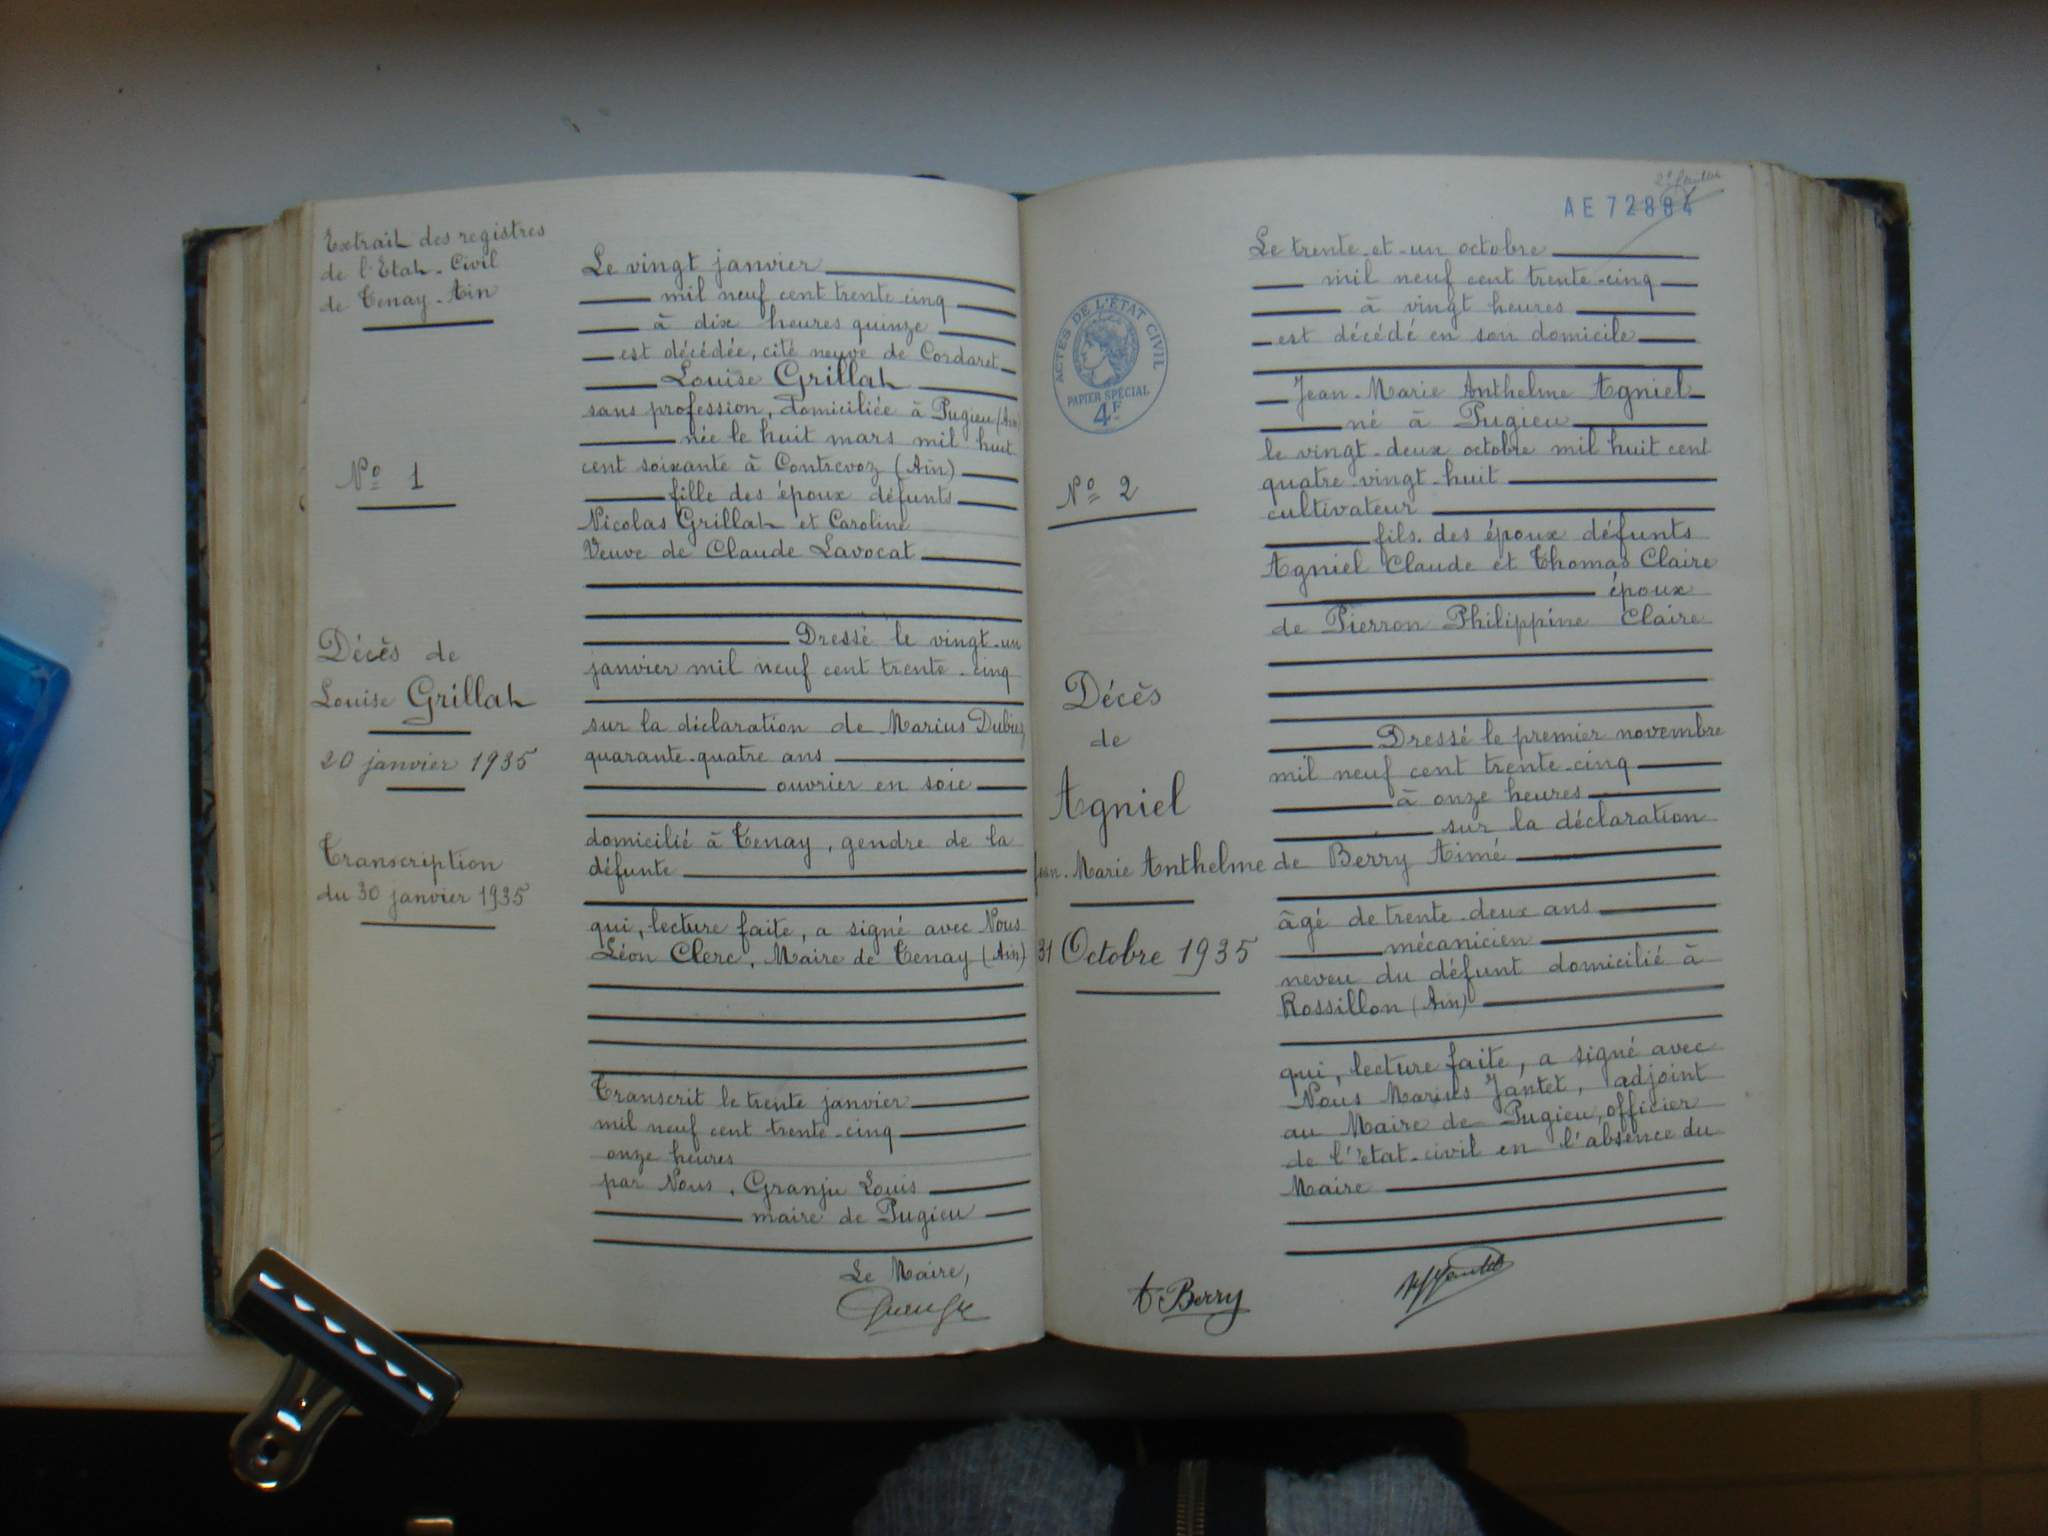 Extrait des registres
de l'Etat-Civil
de Tenay-Ain
N° 1
Décès de
Louise Grillat
20 janvier 1935
Transcription
du 30 janvier 1935
Le vingt janvier
mil neuf cent trente cinq
à dix heures quinze
est décédée, cité neuve de Cordaret
Louise Grillat
sans profession, domiciliée à Pugieu (Ain)
née le huit mars mil huit
cent soixante à Contrevoz (Ain)
fille des époux défunts
Nicolas Grillat et Caroline
Veuve de Claude Lavocat
Dressé le vingt-un
janvier mil neuf cent trente-cinq
sur la déclaration de Marius
quarante-quatre ans
ouvrier en soie
domicilié à Tenay, gendre de la
défunte
qui, lecture faite, a signé avec Nous
Léon Clerc, Maire de Tenay (Ain)
Transcrit le trente janvier
mil neuf cent trente-cinq
onze heures
par Nous, Granju Louis
maire de Pugieu
Le Maire,
AE 72884
ACTES DE L'ÉTAT CIVIL
PAPIER SPÉCIAL
4F
N° 2
Décès
de
Agniel
Jean-Marie Anthelme
31 Octobre 1935
Le trente-et-un octobre
mil neuf cent trente-cinq
à vingt heures
est décédé en son domicile
Jean-Marie Anthelme Agniel
né à Pugieu
le vingt-deux octobre mil huit cent
quatre-vingt-huit
cultivateur
fils. des époux défunts
Agniel Claude et Thomas Claire
époux
de Pierron Philippine Claire
Dressé le premier novembre
mil neuf cent trente-cinq
à onze heures
sur la déclaration
de Berry Aimé
âgé de trente-deux ans
mécanicien
neveu du défunt domicilié à
Rossillon (Ain)
qui, lecture faite, a signé avec
Nous Marius Jantet, adjoint
au Maire de Pugieu, officier
de l'état-civil en l'absence du
Maire
A. Berry